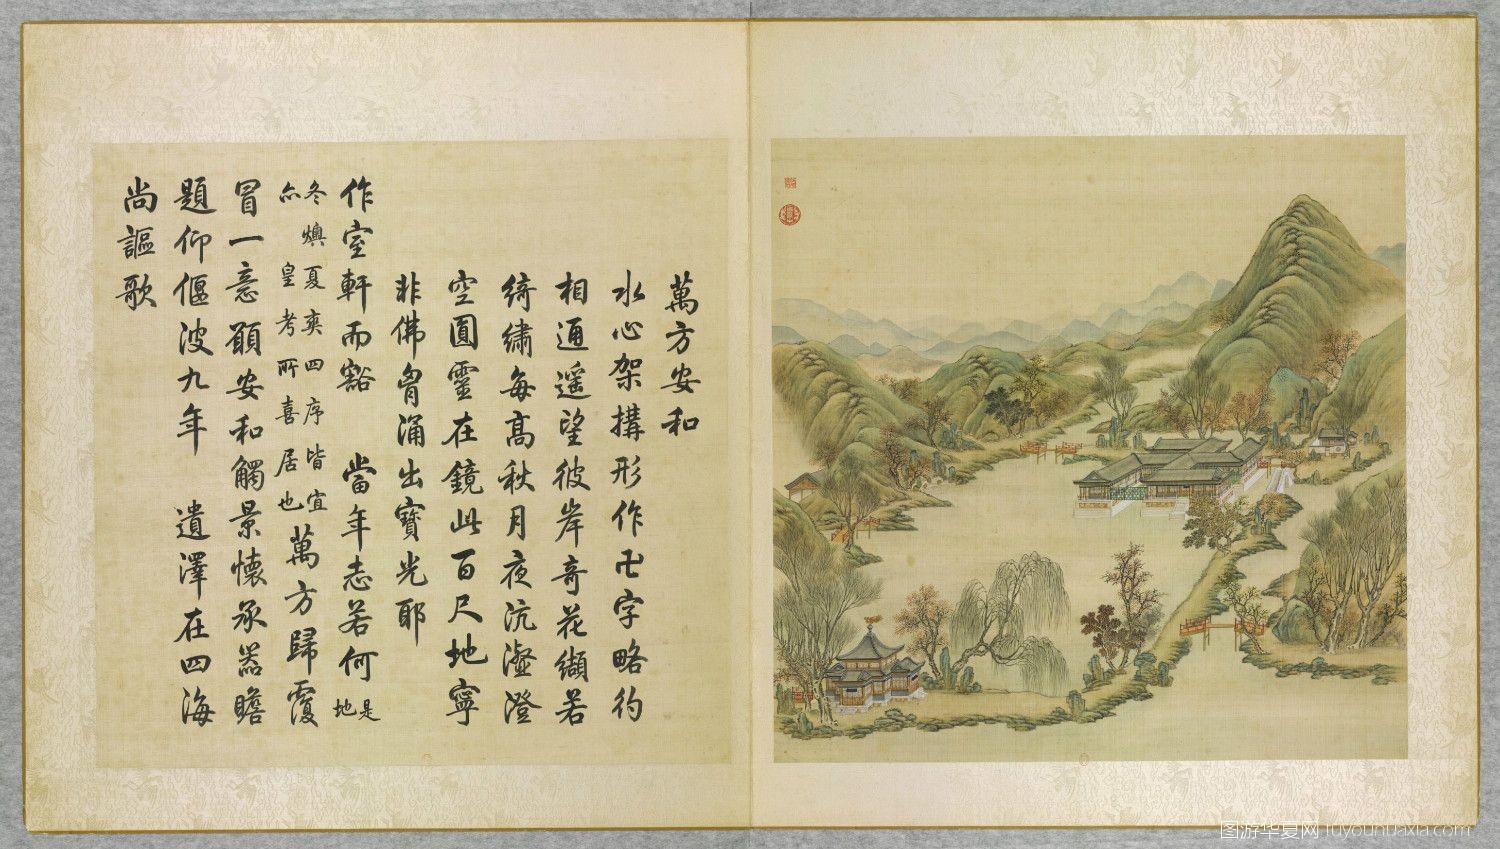 萬方安和
水心架搆形作卍字略彴
相通遥望彼岸奇花纈若
綺繡每髙秋月夜沆瀣澄
空圓靈在鏡此百尺地寧
非佛胷涌出寶光耶
作室軒而豁 當年志若何 是地
冬燠夏爽四序皆宜
亦皇考所喜居也 萬方歸覆
冒一意願安和觸景懷承器瞻
題仰偃波九年 遺澤在四海
尚謳歌
图游华夏网 tuyouhuaxia.com